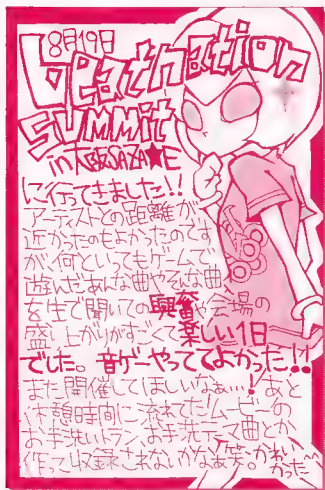 8月19日
beatnation
summit
in 大阪SAZA★E
に行ってきました!!
アーティストとの距離が
近かったのもよかったのです
が、何といってもゲームで
遊んだあんな曲やそんな曲
を生で聞いての興奮や会場の
盛り上がりがすごくて楽しい1日
でした。音ゲーやっててよかった!!
また開催してほしいなぁ…!あと
休憩時間に流れてたムービーの
お手洗いトラン、お手洗テーマ曲とか
作って収録されないかなぁ笑。かわい
かった^^